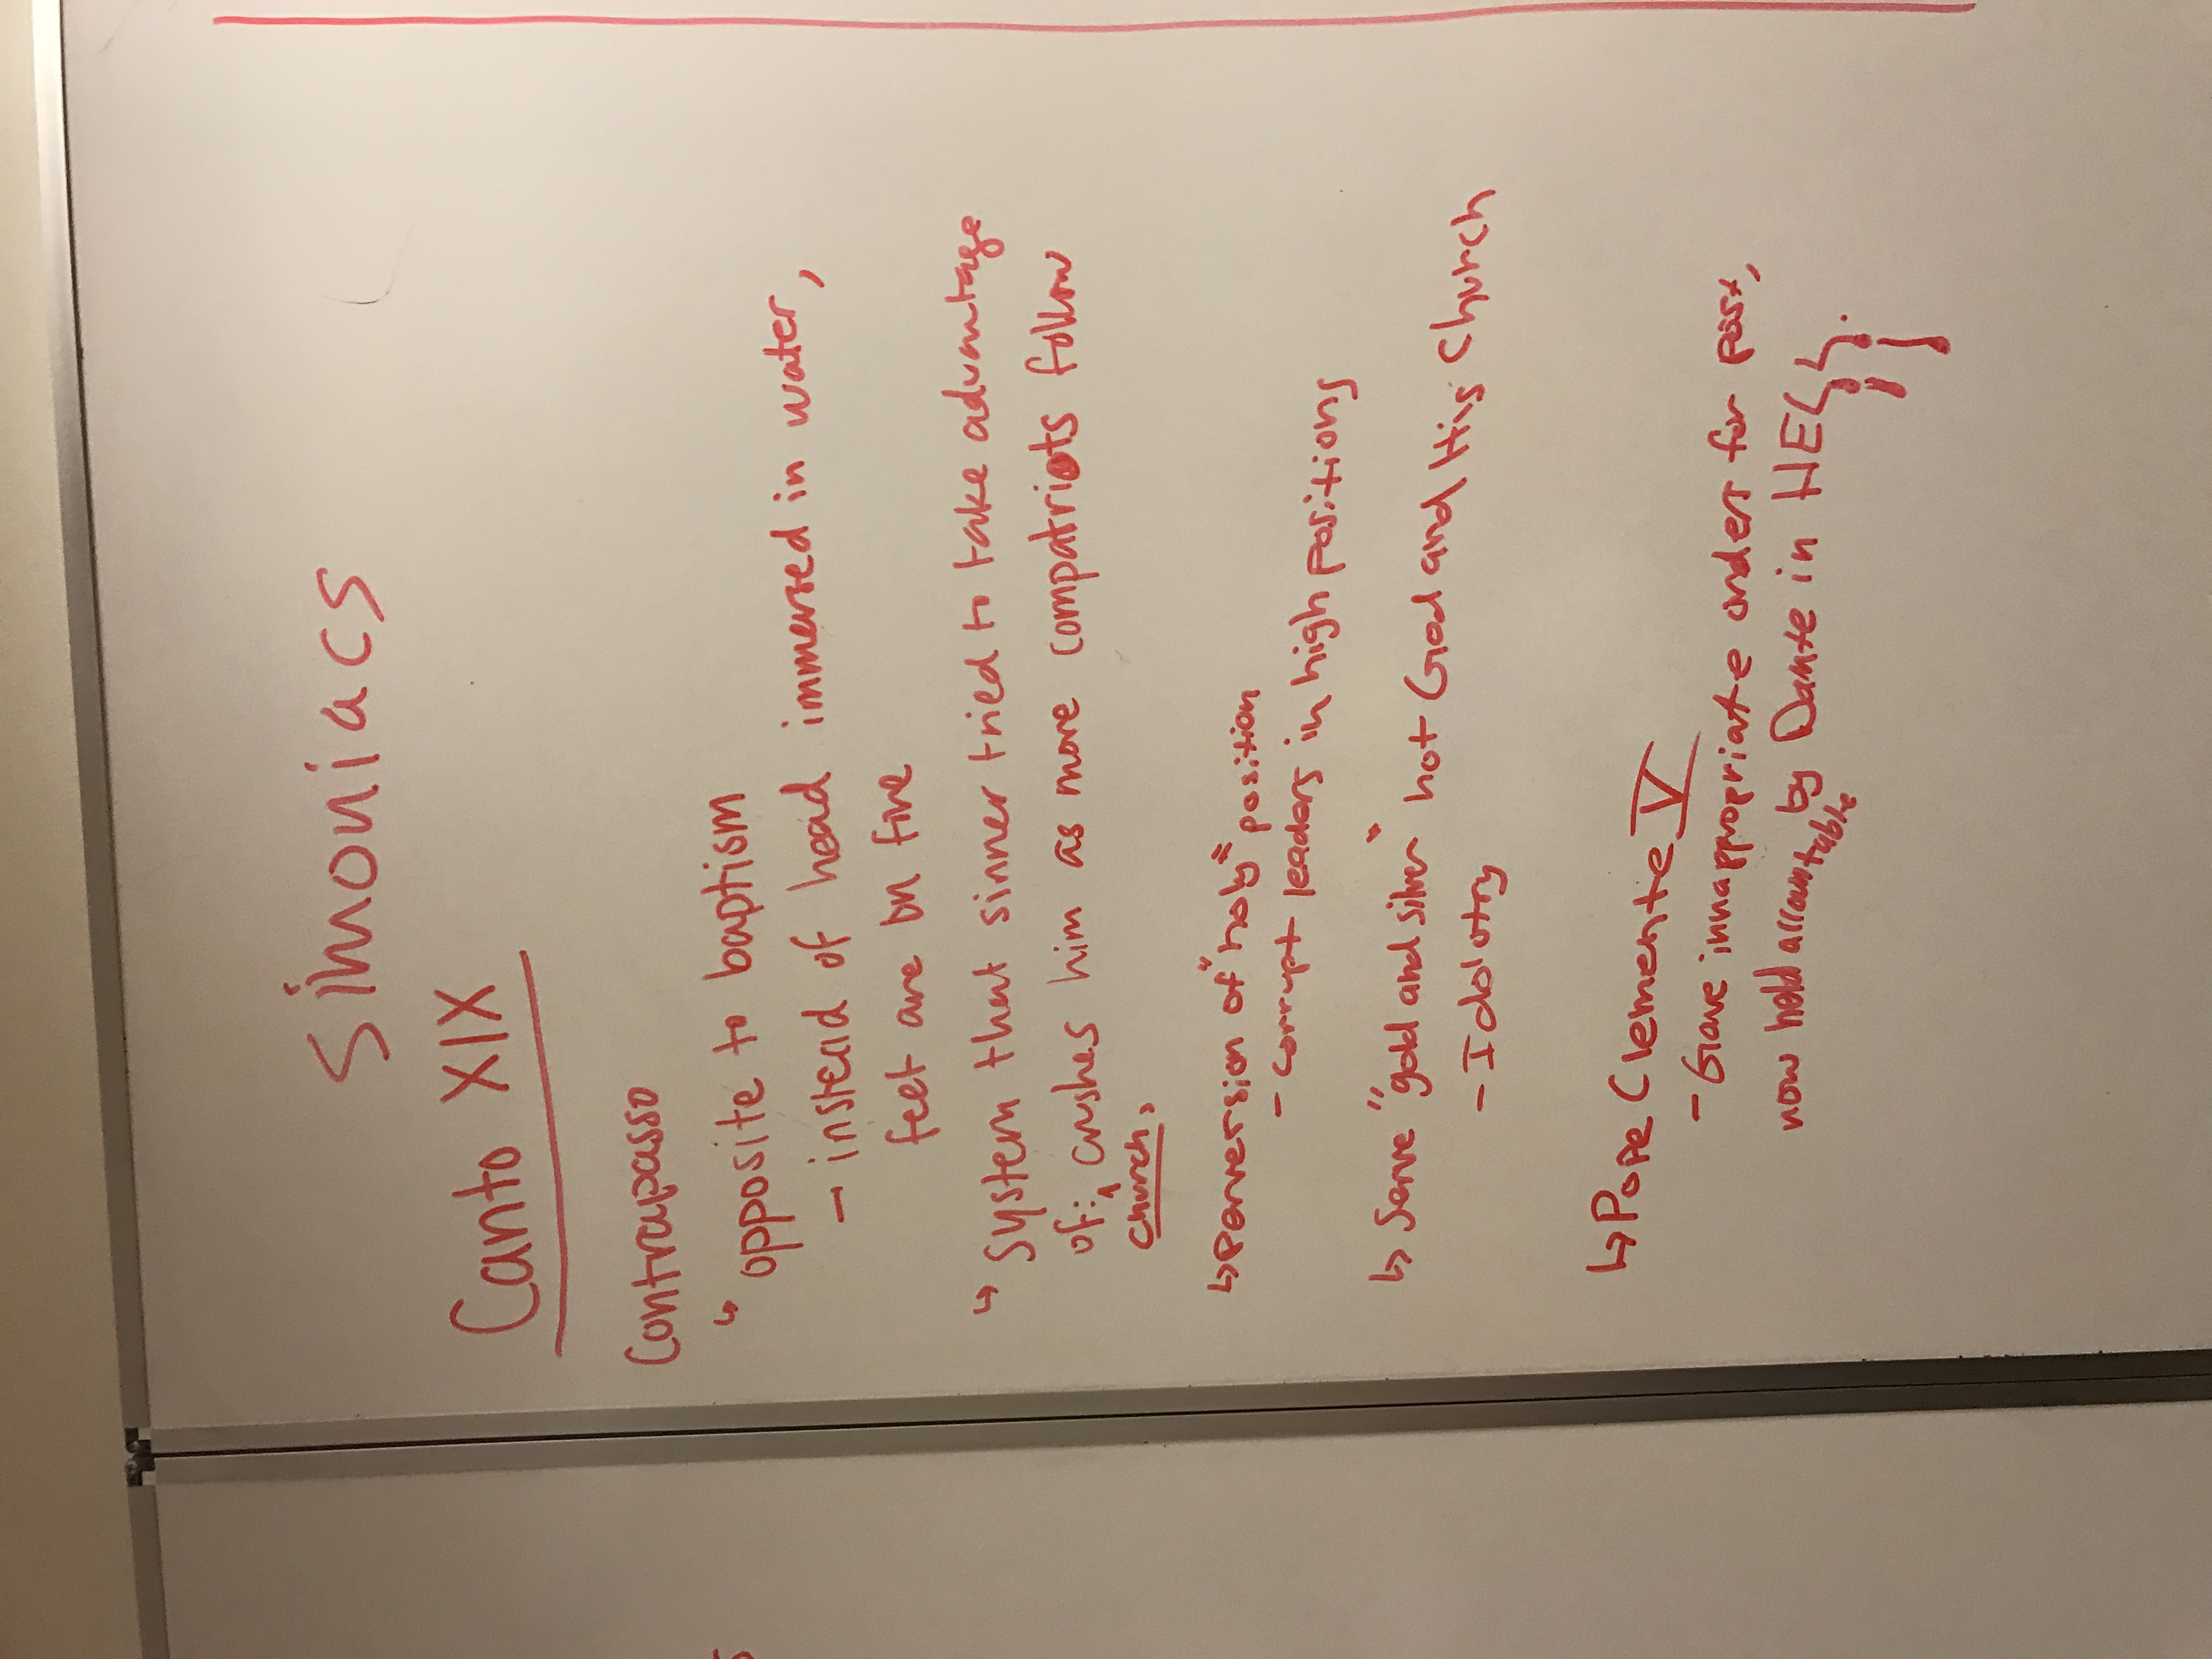 Simoniacs
Canto XIX
Contrapasso
↳ opposite to baptism
- instead of head immersed in water,
feet are on fire
↳ System that sinner tried to take advantage
of: crushes him as more compatriots follow
church.
↳ Perversion of "holy" position
- corrupt leaders in high positions
↳ Serve "gold and silver" not God and His Church
- Idolotry
↳ Pope Clemente V
- Gave innappropriate orders for past,
now held accountable by Dante in HELL!!!